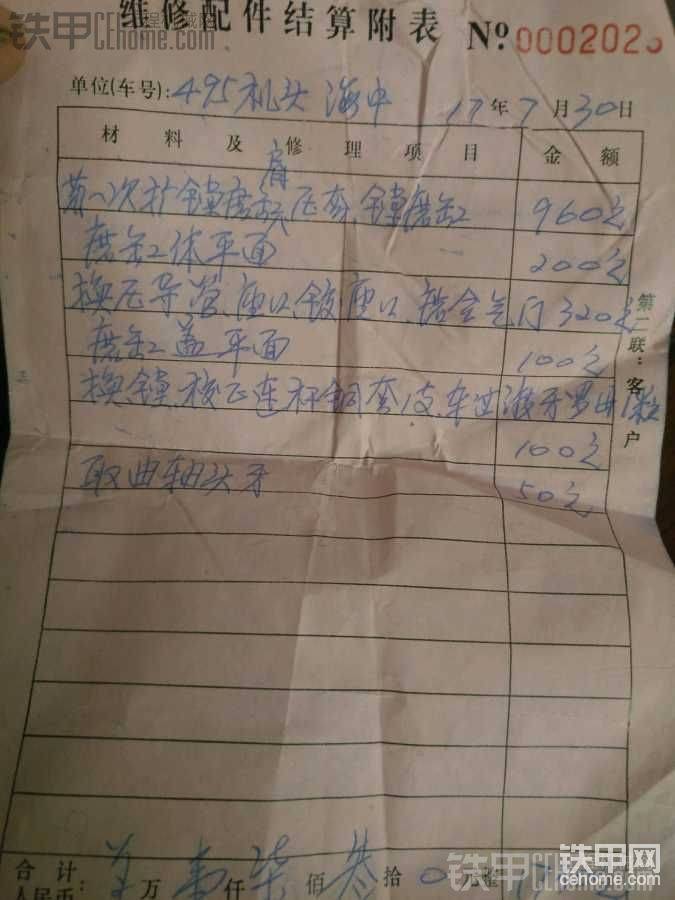 维修配件结算附表 №0002023
单位(车号): 495机头 海中 17年7月30日
材料及修理项目 金额
第一次扩镗磨缸肩压套、镗磨缸 960元
磨缸体平面 200元
换压导管、座口、铰座口、铬合气门 320元
磨缸盖平面 100元
换、镗、校正连杆铜套1支、车过渡牙罗母1粒
100元
取曲轴头牙 50元
第二联:客户
合计 万 仟 柒佰叁拾0元整
人民币
铁甲 CHomme.com
铁甲网
cehome.com